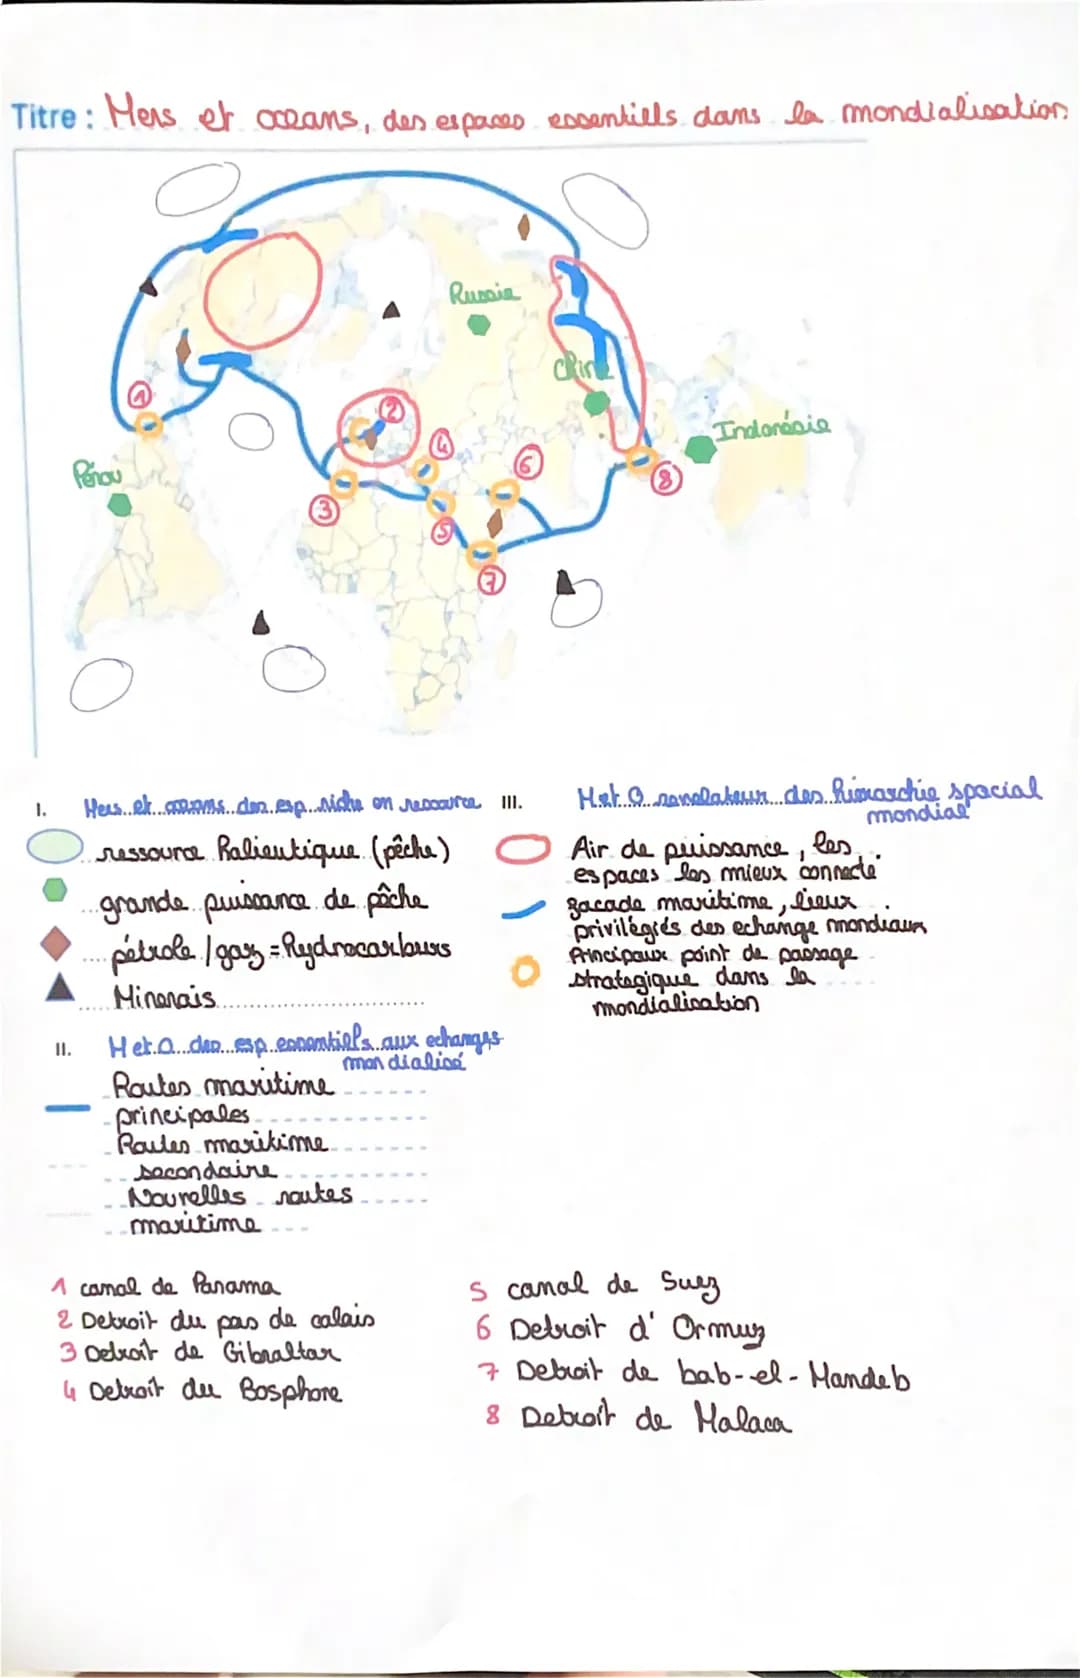 Titre : Mers et oceans, des espaces essentiells dans la mondialisation
Russie
Chine
Indonésie
Pérou
1
2
3
4
5
6
7
8
I. Mers et oceans des esp riche en ressource
ressource halieutique (pêche)
grande puissance de pêche
pétrole / gaz = hydrocarburs
Minerais
II. M et O des esp essentiells aux echanges
mondialisé
Routes maritime
principales
Routes maritime
secondaire
Nouvelles routes
maritime
III. M et O revelateur des hierarchie spacial
mondial
Air de puissance, les
espaces les mieux connecté
facade maritime, lieux
privilègiés des echange mondiaux
Principaux point de passage
strategique dans la
mondialisation
1 canal de Panama
2 Detroit du pas de calais
3 Detroit de Gibraltar
4 Detroit du Bosphore
5 canal de Suez
6 Detroit d'Ormuz
7 Detroit de bab-el-Mandeb
8 Detroit de Malaca